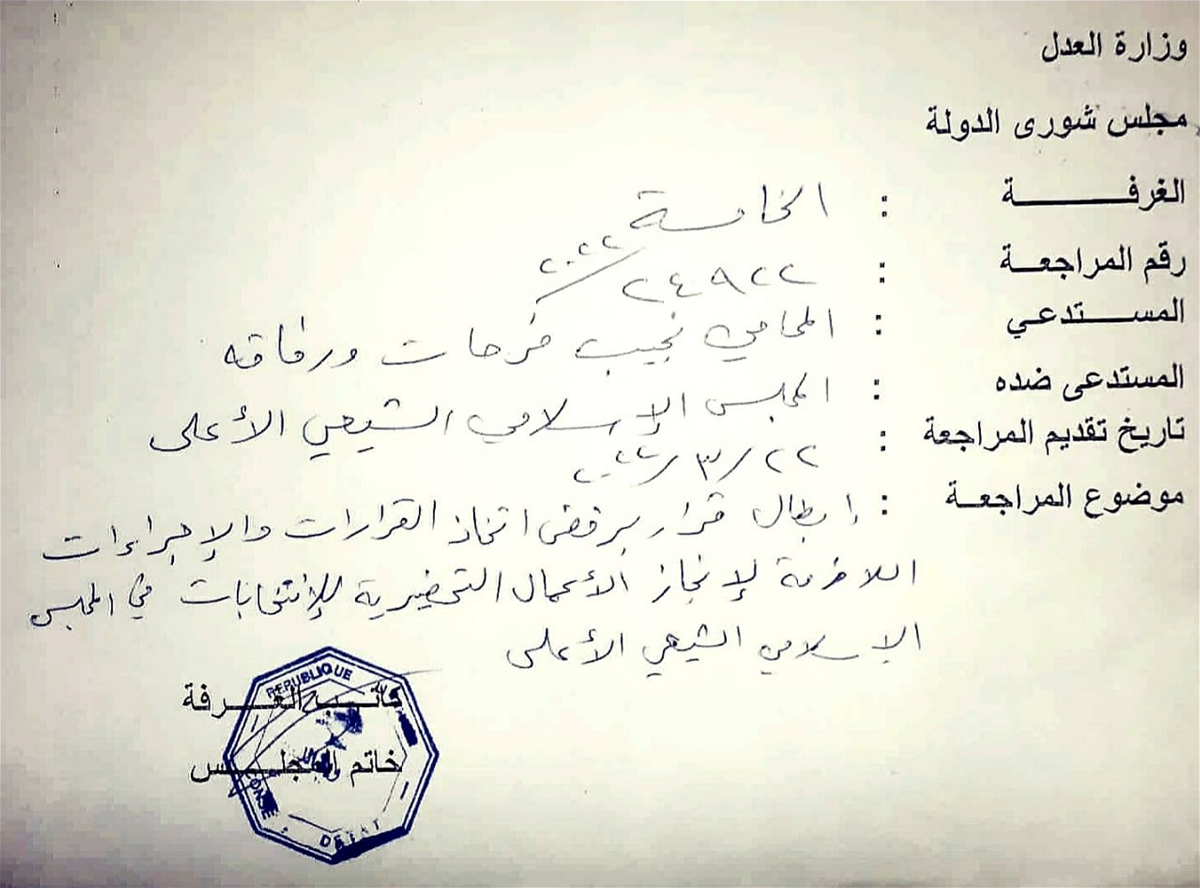 وزارة العدل
مجلس شورى الدولة
الغرفة : الخامسة
رقم المراجعة : ٢٤٩٢٢/٢٠٢٢
المستدعي : المحامي نجيب فرحات ورفاقه
المستدعى ضده : المجلس الإسلامي الشيعي الأعلى
تاريخ تقديم المراجعة : ٢٢/٣/٢٠٢٢
موضوع المراجعة : إبطال قرار برفض اتخاذ القرارات والإجراءات
اللازمة لإنجاز الأعمال التحضيرية للإنتخابات في المجلس
الإسلامي الشيعي الأعلى
كاتب الغرفة
خاتم المجلس
REPUBLIQUE
D'ETAT